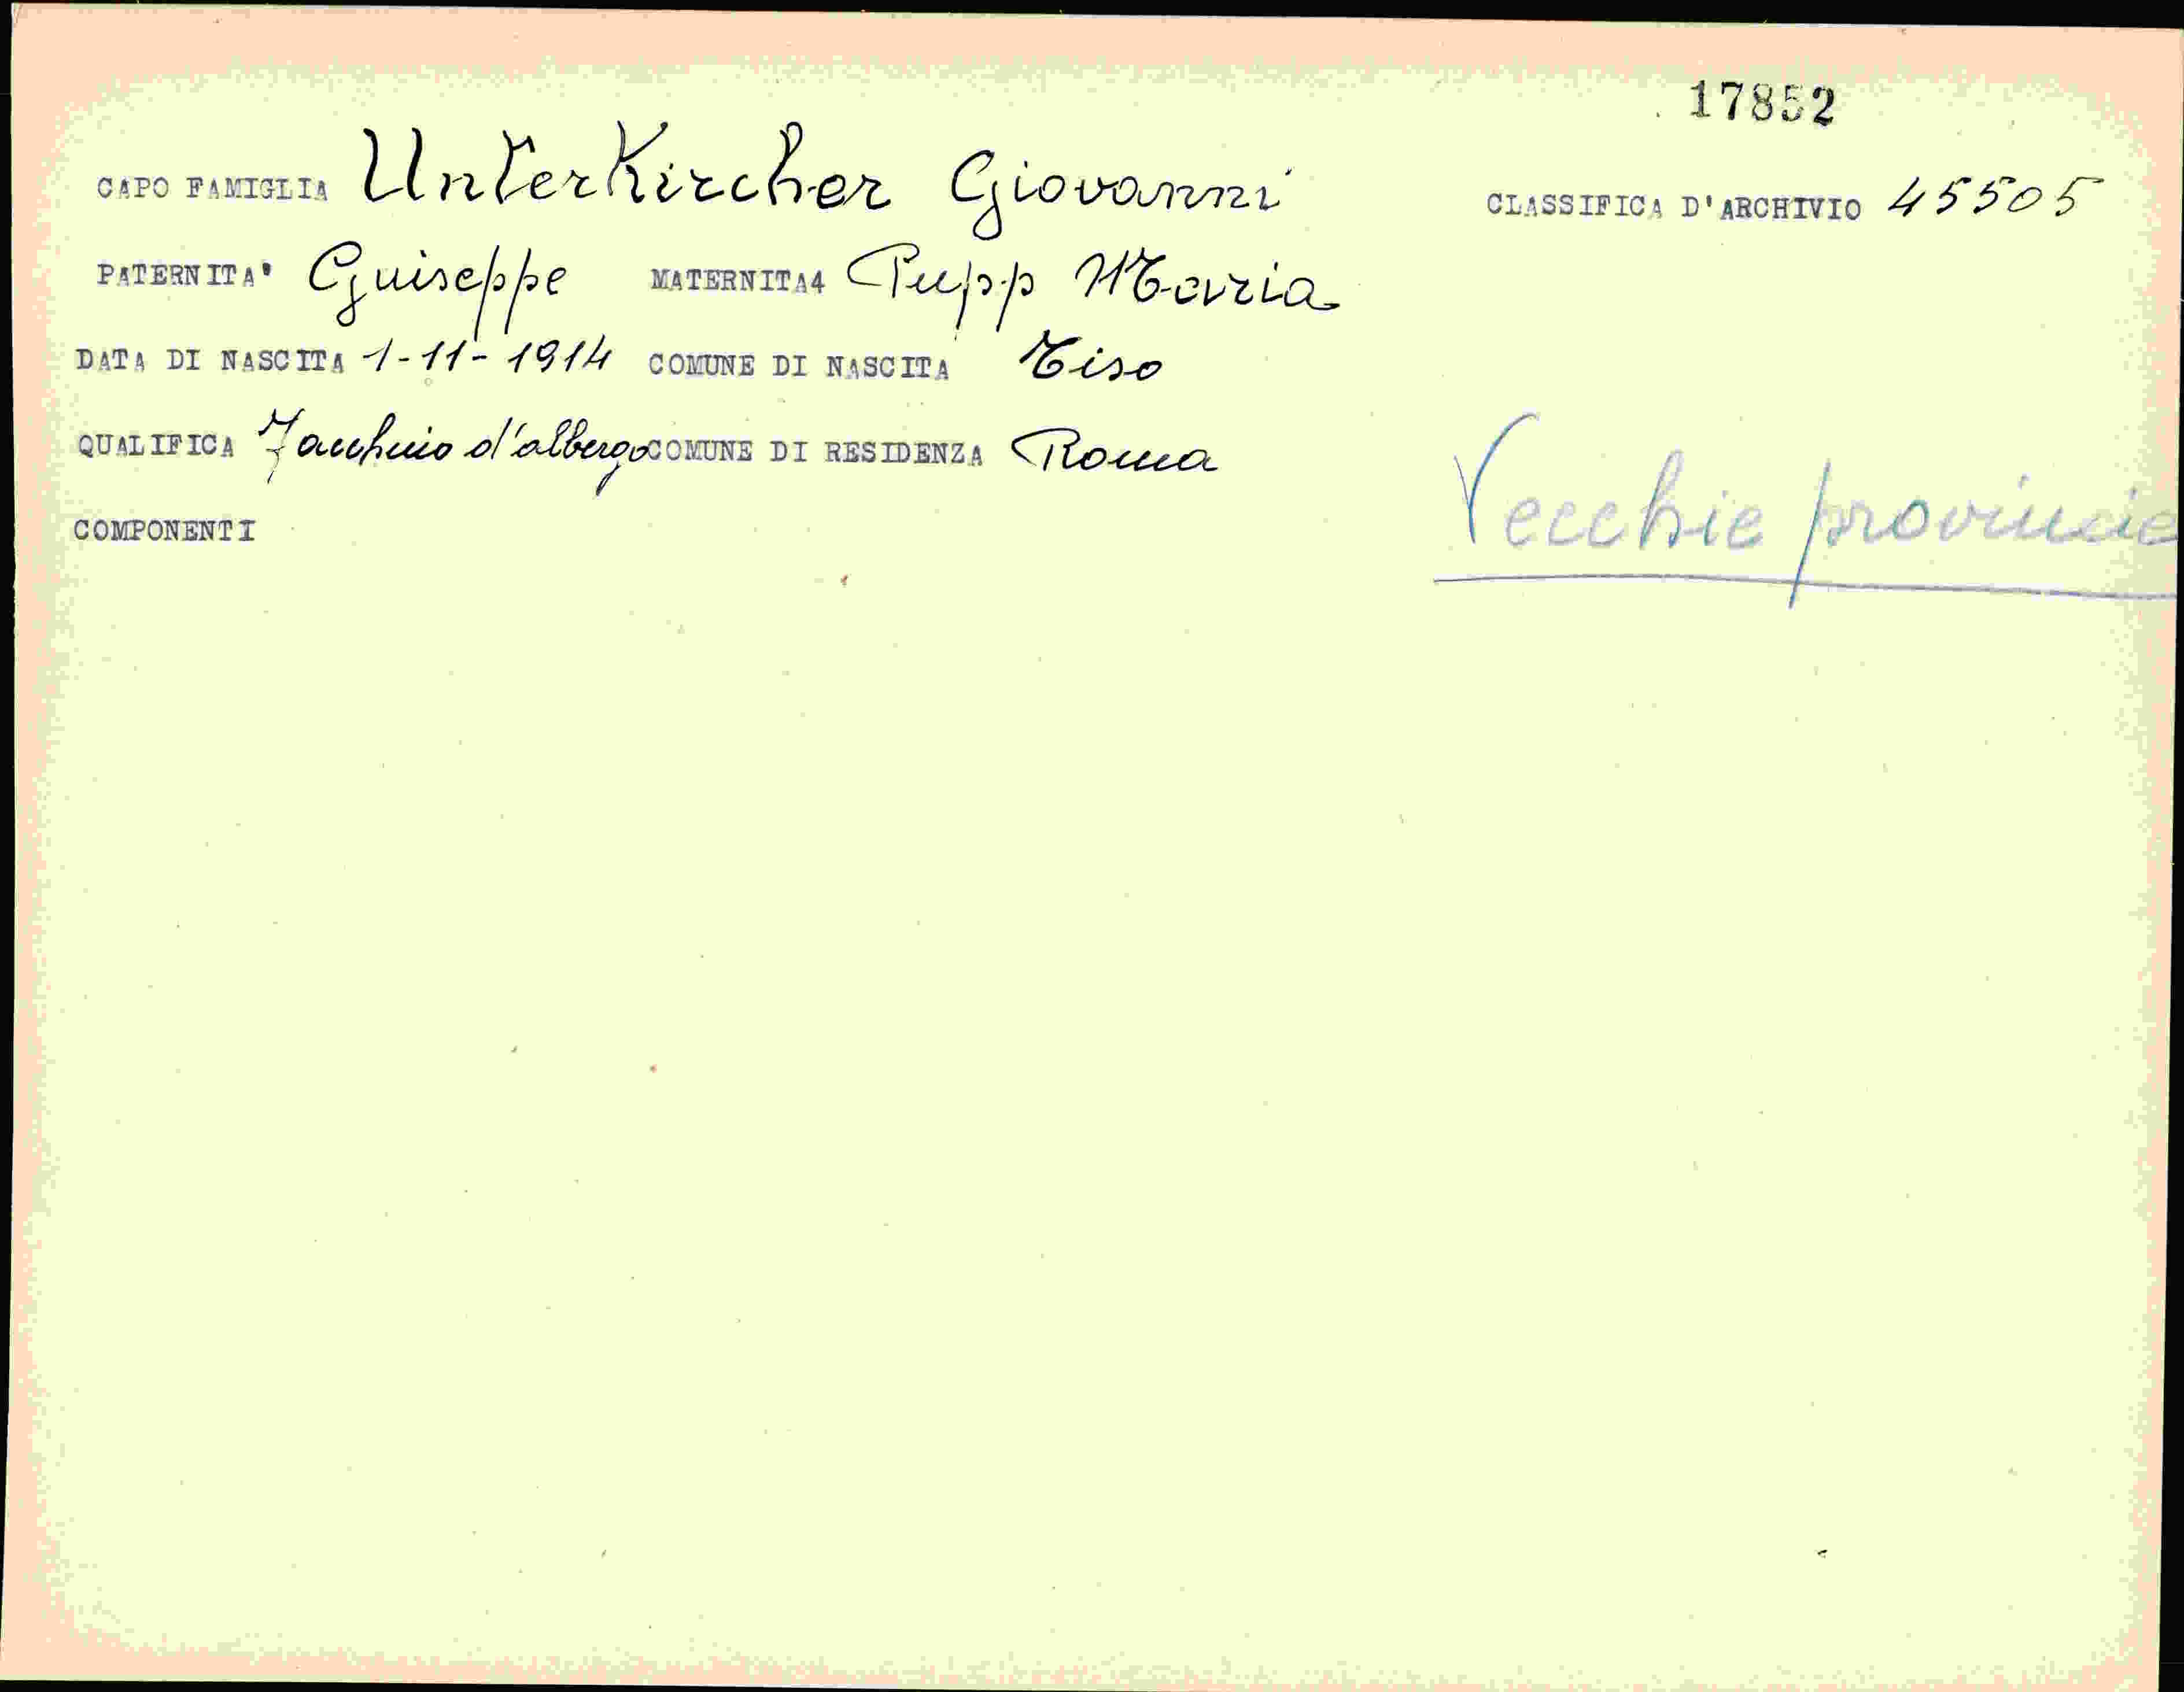 17852
CAPO FAMIGLIA Unterkircher Giovanni CLASSIFICA D'ARCHIVIO 45505
PATERNITA' Guiseppe MATERNITA4 Pupp Maria
DATA DI NASCITA 1-11-1914 COMUNE DI NASCITA Tiso
QUALIFICA Facchino d'albergo COMUNE DI RESIDENZA Roma
Vecchie provincie
COMPONENTI